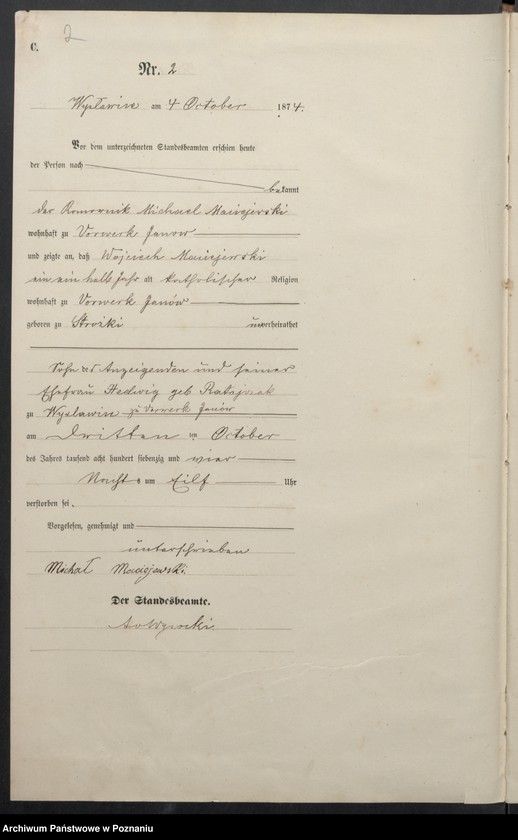 2
C.
Nr. 2
Wysławice am 4 October 1874.
Vor dem unterzeichneten Standesbeamten erschien heute
der Person nach
bekannt
der Komornik Michael Maciejewski
wohnhaft zu Vorwerk Janow
und zeigte an, daß Wojciech Maciejewski
ein ein halb Jahr alt katholischer Religion
wohnhaft zu Vorwerk Janów
geboren zu Stroszki unverheirathet
Sohn des Anzeigenden und seiner
Ehefrau Hedwig geb Ratajczak
zu Wyslawice zu Vorwerk Janów
am dritten ten October
des Jahres tausend acht hundert siebenzig und vier
Nachts um Eilf Uhr
verstorben sei.
Vorgelesen, genehmigt und
unterschrieben
Michał Maciejewski.
Der Standesbeamte.
Archiwum Państwowe w Poznaniu